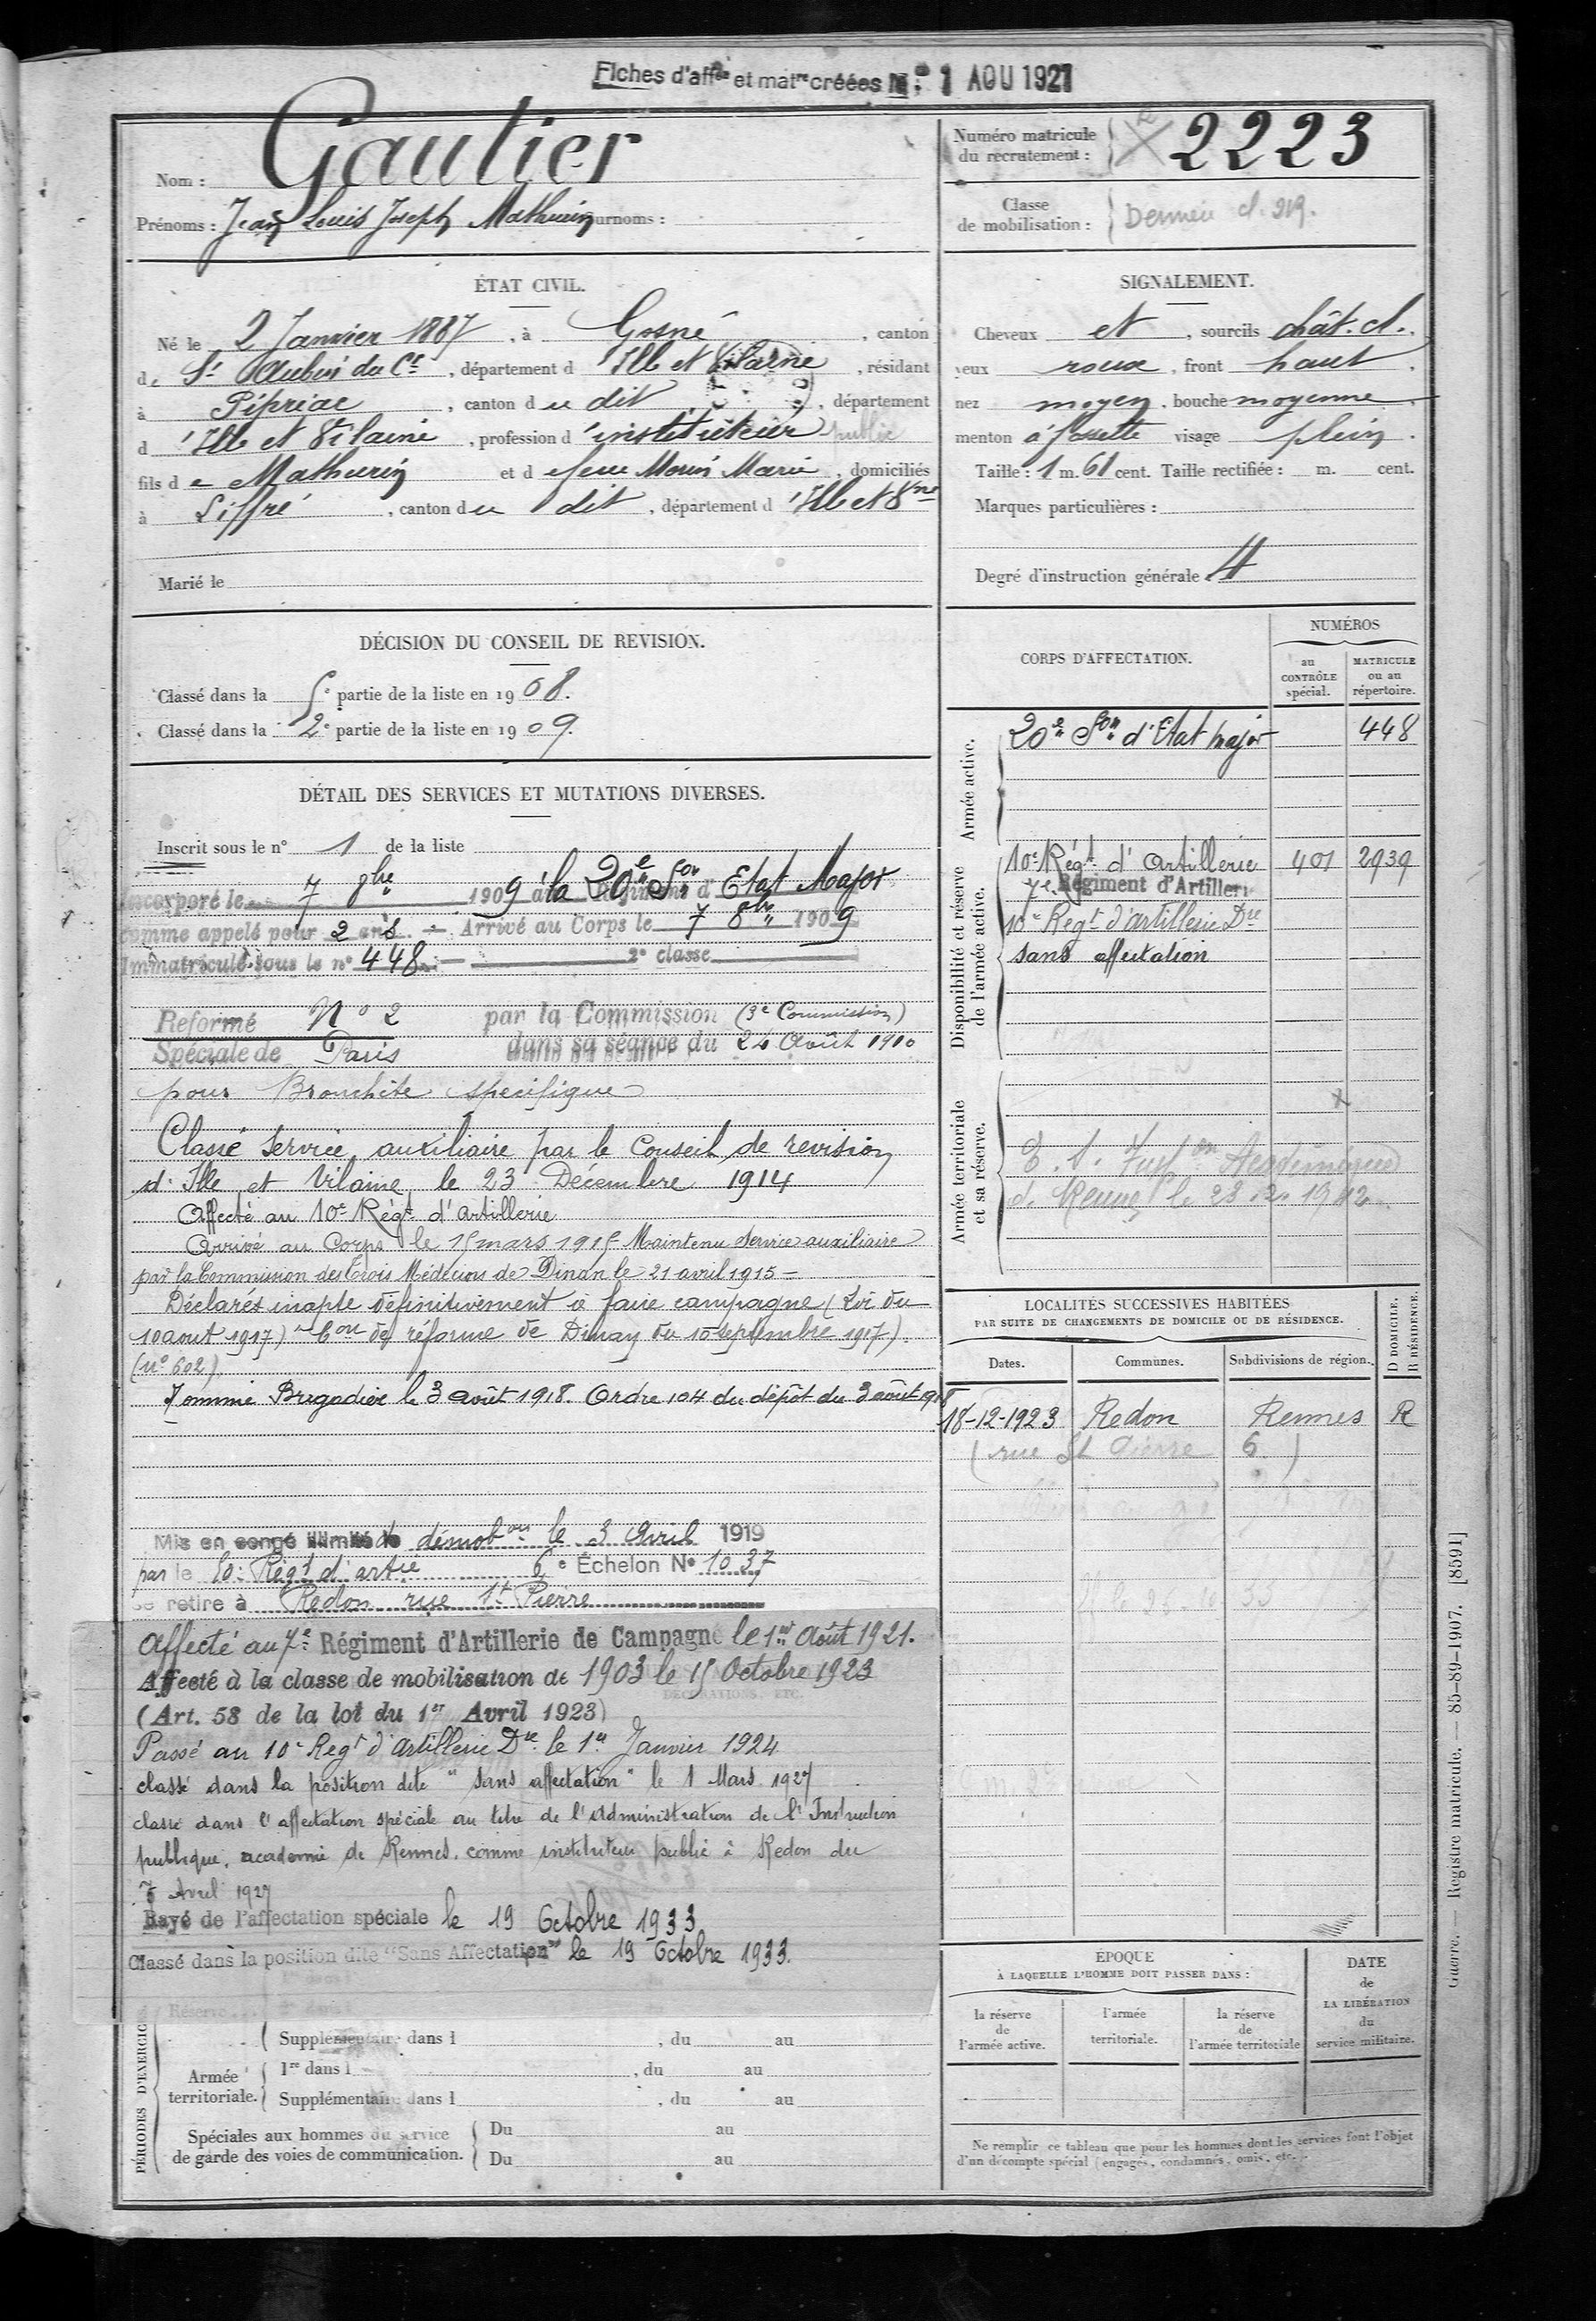 Fiches d'aff^on et mat^re créées N° 1 AOU 1927
Nom : Gautier
Prénoms : Jean Louis Joseph Mathurin Surnoms :
Numéro matricule du recrutement : 2223
Classe de mobilisation : Dernière cl. 219.
ÉTAT CIVIL.
Né le 2 Janvier 1887, à Gosné, canton
de St Aubin du Cr, département d'Ille et Vilaine, résidant
à Pipriac, canton du dit, département
d'Ille et Vilaine, profession d'instituteur public
fils de Mathurin et de feue Morin Marie, domiciliés
à Liffré, canton du dit, département d'Ille et Vne
Marié le
SIGNALEMENT.
Cheveux et, sourcils chât. cl.
yeux roux, front haut.
nez moyen, bouche moyenne,
menton à fossette visage plein.
Taille : 1 m. 61 cent. Taille rectifiée : m. cent.
Marques particulières :
Degré d'instruction générale 4
DÉCISION DU CONSEIL DE REVISION.
Classé dans la 5e partie de la liste en 1908.
Classé dans la 2e partie de la liste en 1909.
DÉTAIL DES SERVICES ET MUTATIONS DIVERSES.
Inscrit sous le n° 1 de la liste
Incorporé le 7 8bre 1909 à la 20e Son d'Etat Major
comme appelé pour 2 ans. — Arrivé au Corps le 7 8bre 1909
Immatriculé sous le n° 448 — 2e classe
Reformé N° 2 par la Commission (3e Commission)
Spéciale de Paris dans sa séance du 24 Août 1910
pour Bronchite specifique
Classé Service auxiliaire par le Conseil de revision
d'Ille et Vilaine le 23 Décembre 1914
Affecté au 10e Régt d'artillerie
Arrivé au Corps le 15 mars 1915 Maintenu Service auxiliaire
par la Commission des Trois Médecins de Dinan le 21 avril 1915 —
Déclarés inapte définitivement à faire campagne (Loi du
10 aout 1917) Con de réforme de Dinan du 10 septembre 1917).
(n° 602)
Nommé Brigadier le 3 août 1918. Ordre 104 du dépôt du 3 août 1918
Mis en congé illimité de démobon le 3 Avril 1919
par le 10e Régt d'artie 6e Échelon N° 1037
se retire à Redon rue St Pierre
Affecté au 7e Régiment d'Artillerie de Campagne le 1er Août 1921.
Affecté à la classe de mobilisation de 1903 le 15 Octobre 1923
(Art. 58 de la loi du 1er Avril 1923)
DÉCORATIONS, ETC.
Passé au 10e Regt d'Artillerie Dre le 1er Janvier 1924
classé dans la position dite "sans affectation" le 1 Mars 1927
classé dans l'affectation spéciale au titre de l'Administration de l'Instruction
publique, academie de Rennes, comme instituteur public à Redon du
7 Avril 1927
Rayé de l'affectation spéciale le 19 Octobre 1933
Classé dans la position dite "Sans Affectation" le 19 Octobre 1933.
PÉRIODES D'EXERCICE
Réserve
Supplémentaire dans l , du au
Armée territoriale.
1re dans l , du au
Supplémentaire dans l , du au
Spéciales aux hommes du service de garde des voies de communication.
Du au
Du au
CORPS D'AFFECTATION.
NUMÉROS
au CONTRÔLE spécial.
MATRICULE ou au répertoire.
Armée active.
20e Son d'Etat major 448
Disponibilité et réserve de l'armée active.
10e Régt d'Artillerie 401 2939
7e Régiment d'Artillerie
10e Regt d'artillerie Dre
sans affectation
Armée territoriale et sa réserve.
Academique
de Rennes le 28.2.1942
LOCALITÉS SUCCESSIVES HABITÉES
PAR SUITE DE CHANGEMENTS DE DOMICILE OU DE RÉSIDENCE.
Dates. Communes. Subdivisions de région. D DOMICILE. R RÉSIDENCE.
18-12-1923 Redon Rennes R
(rue St Pierre 6)
ÉPOQUE
À LAQUELLE L'HOMME DOIT PASSER DANS :
la réserve de l'armée active.
l'armée territoriale.
la réserve de l'armée territoriale
DATE de LA LIBÉRATION du service militaire.
Ne remplir ce tableau que pour les hommes dont les services font l'objet
d'un décompte spécial (engagés, condamnés, omis, etc.).
Guerre. — Registre matricule. — 85-89-1907. [8591]